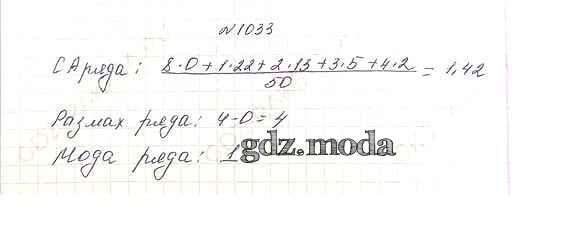 №1033
СА ряда: 8·0+1·22+2·13+3·5+4·2 / 50 = 1,42
Размах ряда: 4-0=4
Мода ряда: 1
gdz.moda